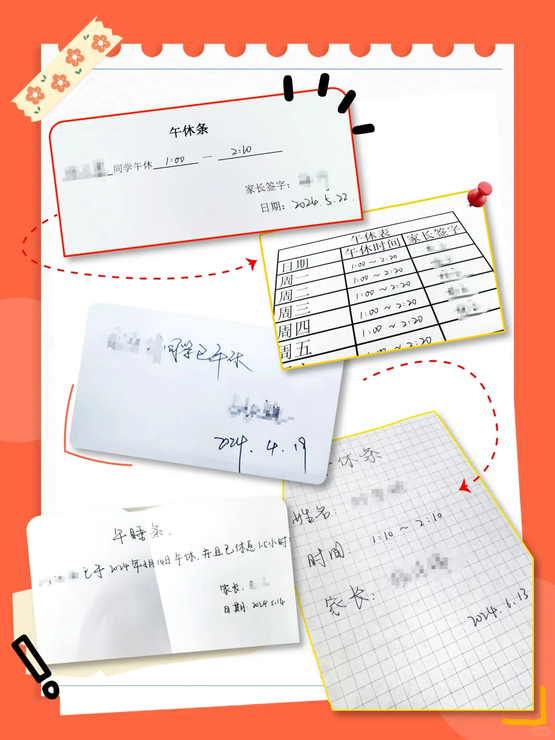 午休条
同学午休 1:00 — 2:10
家长签字:
日期: 2024.5.22.
午休表
日期 午休时间 家长签字
周一 1:00~2:20
周二 1:00~2:20
周三 1:00~2:20
周四 1:00~2:20
周五 1:00~2:20
同学已午休
2024.4.19
午休条
姓名:
时间: 1:10~2:10
家长:
2024.6.13
午睡条.
已于2024年 月14日午休,并且已休息1.5小时
家长:
日期: 2024.5.14